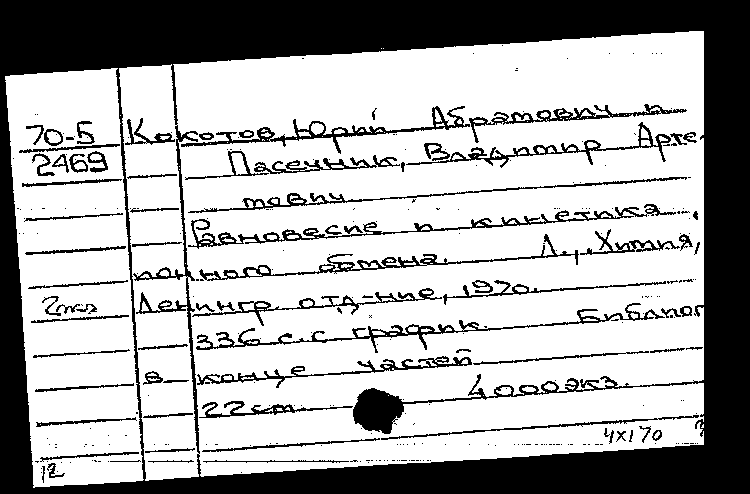 70-5 Кокотов, Юрий Абрамович и
2469 Пасечник, Владимир Арте-
мович
Равновесие и кинетика
ионного обмена. Л., "Химия",
2экз Ленингр. отд-ние, 1970.
336 с. с график. Библиог
в конце частей
22 см. 4000 экз.
4X170
12